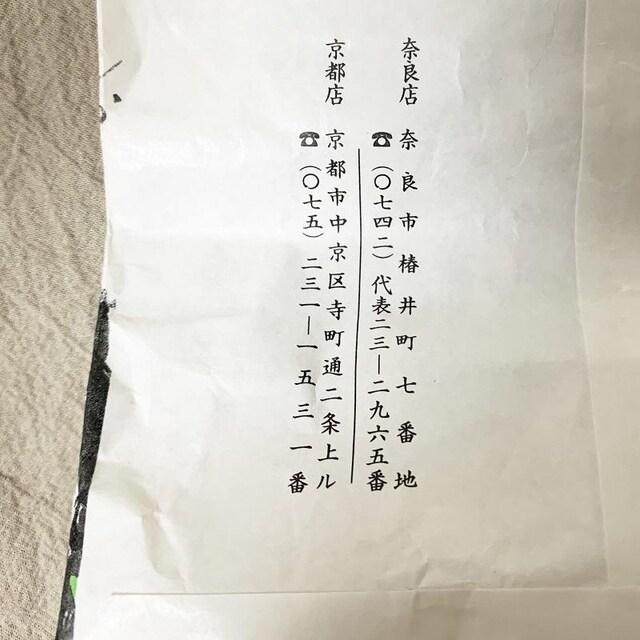 奈良店 奈良市椿井町七番地
☎(〇七四二)代表二三―二九六五番
京都店 京都市中京区寺町通二条上ル
☎(〇七五)二三一―一五三一番